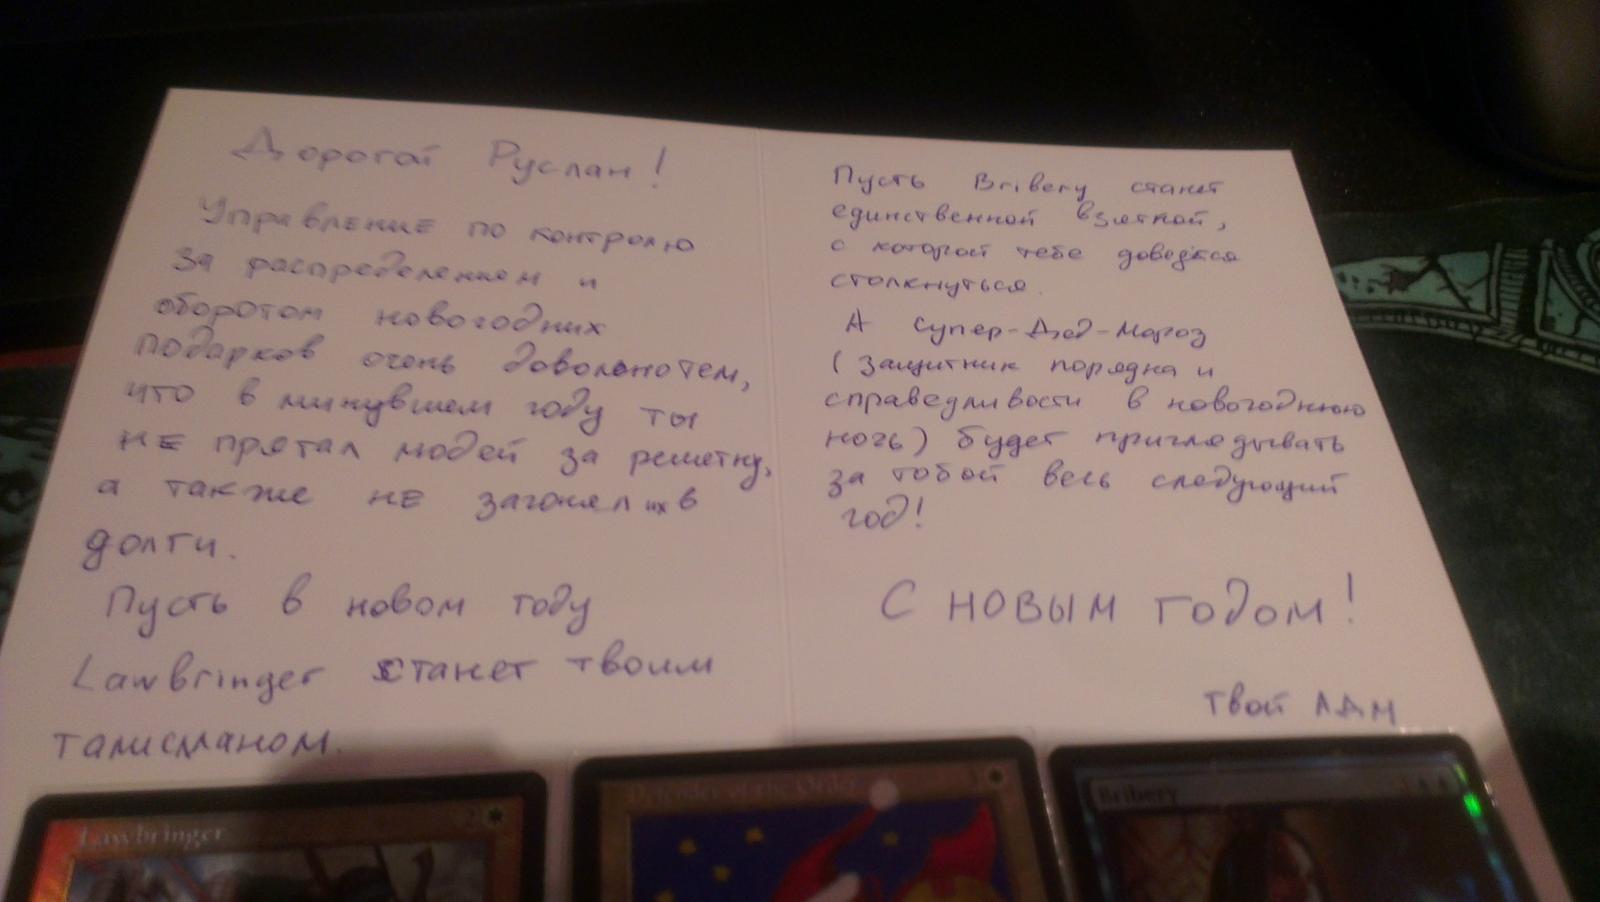 Дорогой Руслан!
Управление по контролю
за распределением и
оборотом новогодних
подарков очень довольно тем,
что в минувшем году ты
не прятал людей за решетку,
а также не загонял их в
долги.
Пусть в новом году
Lawbringer станет твоим
талисманом.
Пусть Bribery станет
единственной взяткой,
с которой тебе доведётся
столкнуться.
А Супер-Дед-Мороз
(защитник порядка и
справедливости в новогоднюю
ночь) будет приглядывать
за тобой весь следующий
год!
С НОВЫМ ГОДОМ!
Твой АДМ
Lawbringer 2
Defender of the Order 3
Bribery